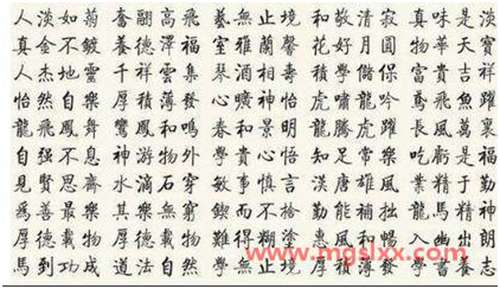 人淡如菊 奮翮高飛 藝無止境 和敬清寂 真味是淡
真金不鍍 養德澤福 室雅蘭馨 花好月圓 物華天寶
人杰地靈 千祥雲集 琴酒相壽 積學儲 富貴吉祥
怡然自樂 厚積薄發 心曠神怡 虎嘯龍吟 鳶飛魚躍
龍飛鳳舞 鸞鳳和鳴 春和景明 龍騰虎躍 長風萬里
自强不息 神游物外 貴心悟 知足常樂 吃虧是福
見賢思齋 水滴石穿 敏事慎言 漢唐雄風 業精于勤
爲善最樂 其樂無窮 鍥而不捨 勤能補拙 龍馬精神
厚德載物 厚德載物 難得糊塗 惠風和暢 入幽出朗
馬到功成 道法自然 學無止境 厚積薄發 學書養志
www.mgslxx.com